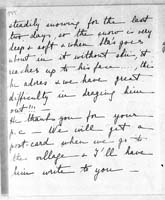 steadily snowing for the last
two days, so the snow is very
deep & soft & when Ita goes
about in it without skis, it
reaches up to his face, this
he adores & we have great
difficulty in draging him
out!!!
He thanks you for your
p.c. — We will get a
post card when we go to
the village & I'll have
him write to you —